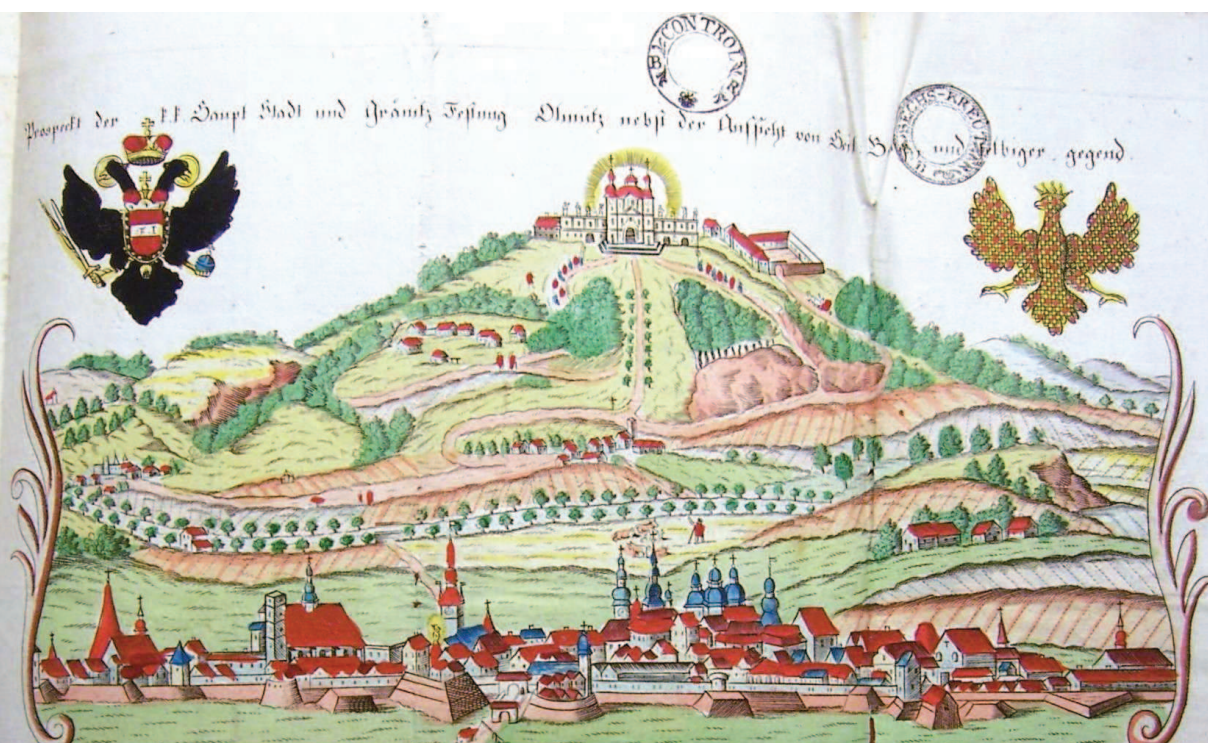 Prospeckt der k.k. Haupt Stadt und Gränitz Festung Olmütz nebst der Aussicht von Heil. Berg, und selbiger gegend.
CONTROLL
SECHS-KREUT